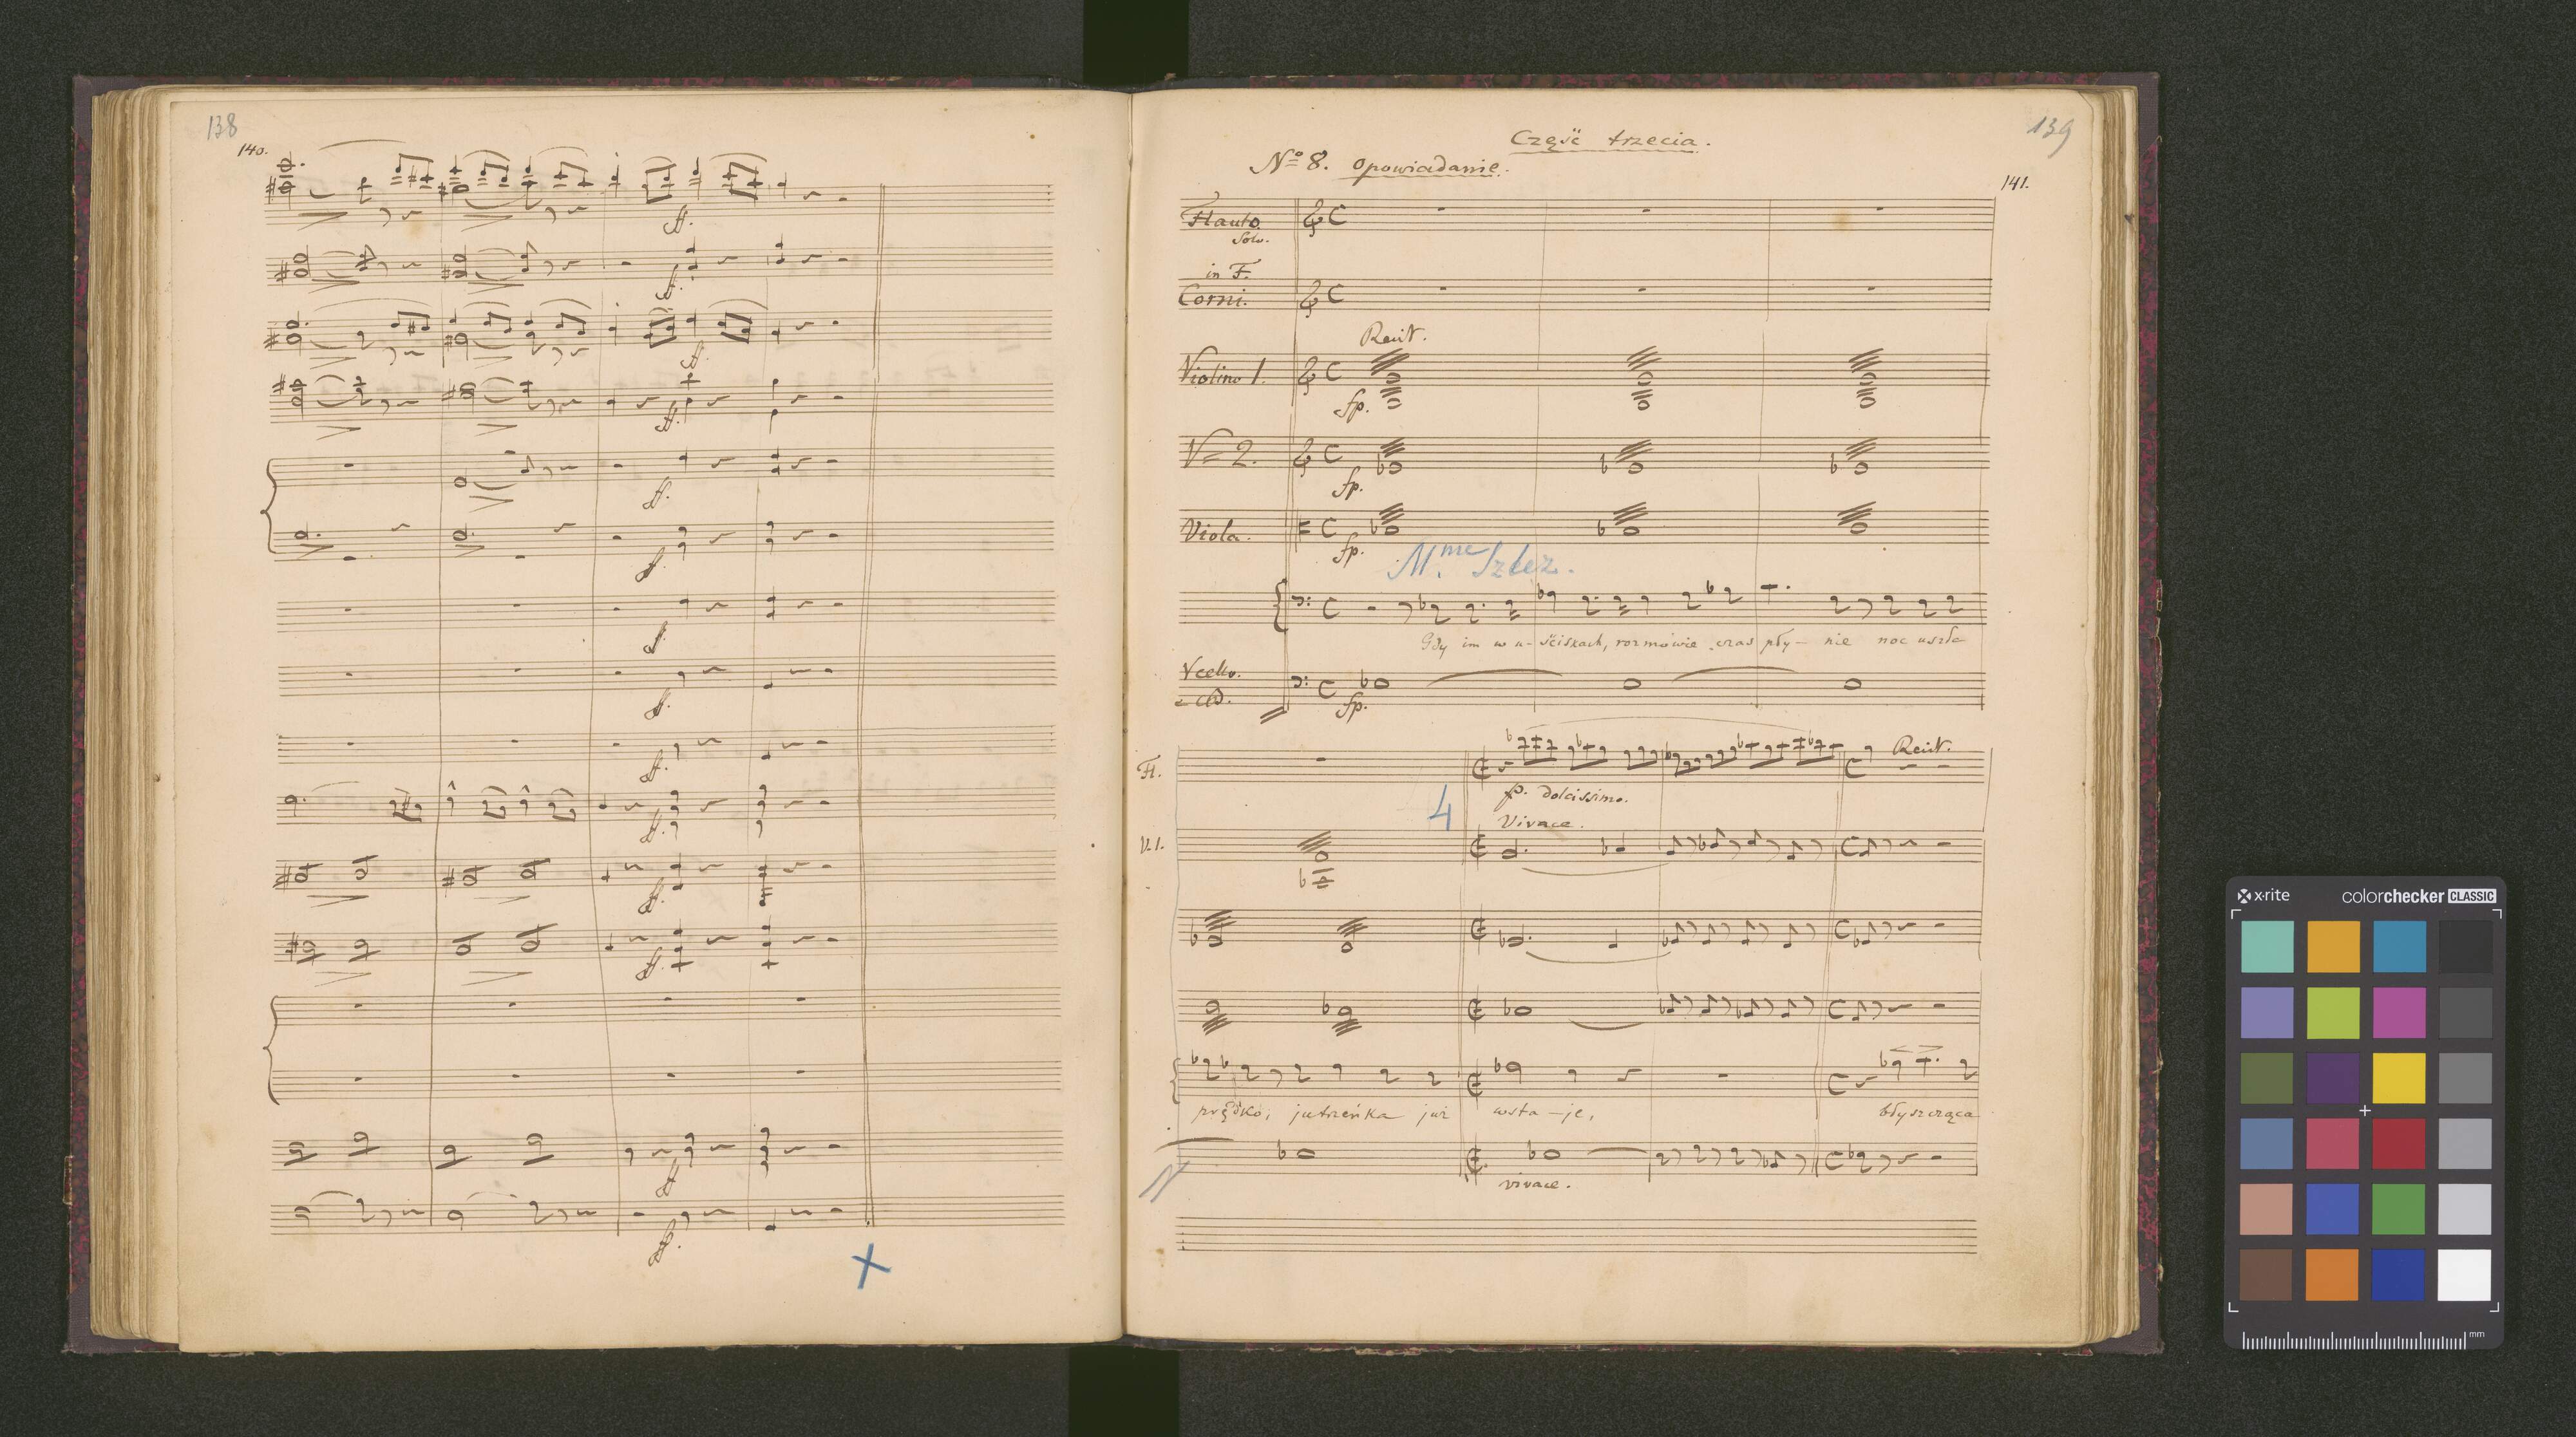 138
140.
ff.
ff.
ff.
ff.
ff.
ff.
ff.
ff.
ff.
ff.
ff.
ff.
ff.
ff.
X
139
Część trzecia.
No 8. Opowiadanie.
141.
Flauto
Solo.
in F.
Corni.
Recit.
Violino 1.
fp.
V= 2.
fp.
Viola.
fp.
Mme Szlez.
Gdy im w u-ściskach, rozmowie czas pły-nie noc uszła
Vcello.
e CB.
fp.
Fl.
Recit.
p. dolcissimo.
4
Vivace.
V. 1.
prędko, jutrzeńka już wsta-je, błyszcząca
vivace.
x-rite
colorchecker CLASSIC
mm